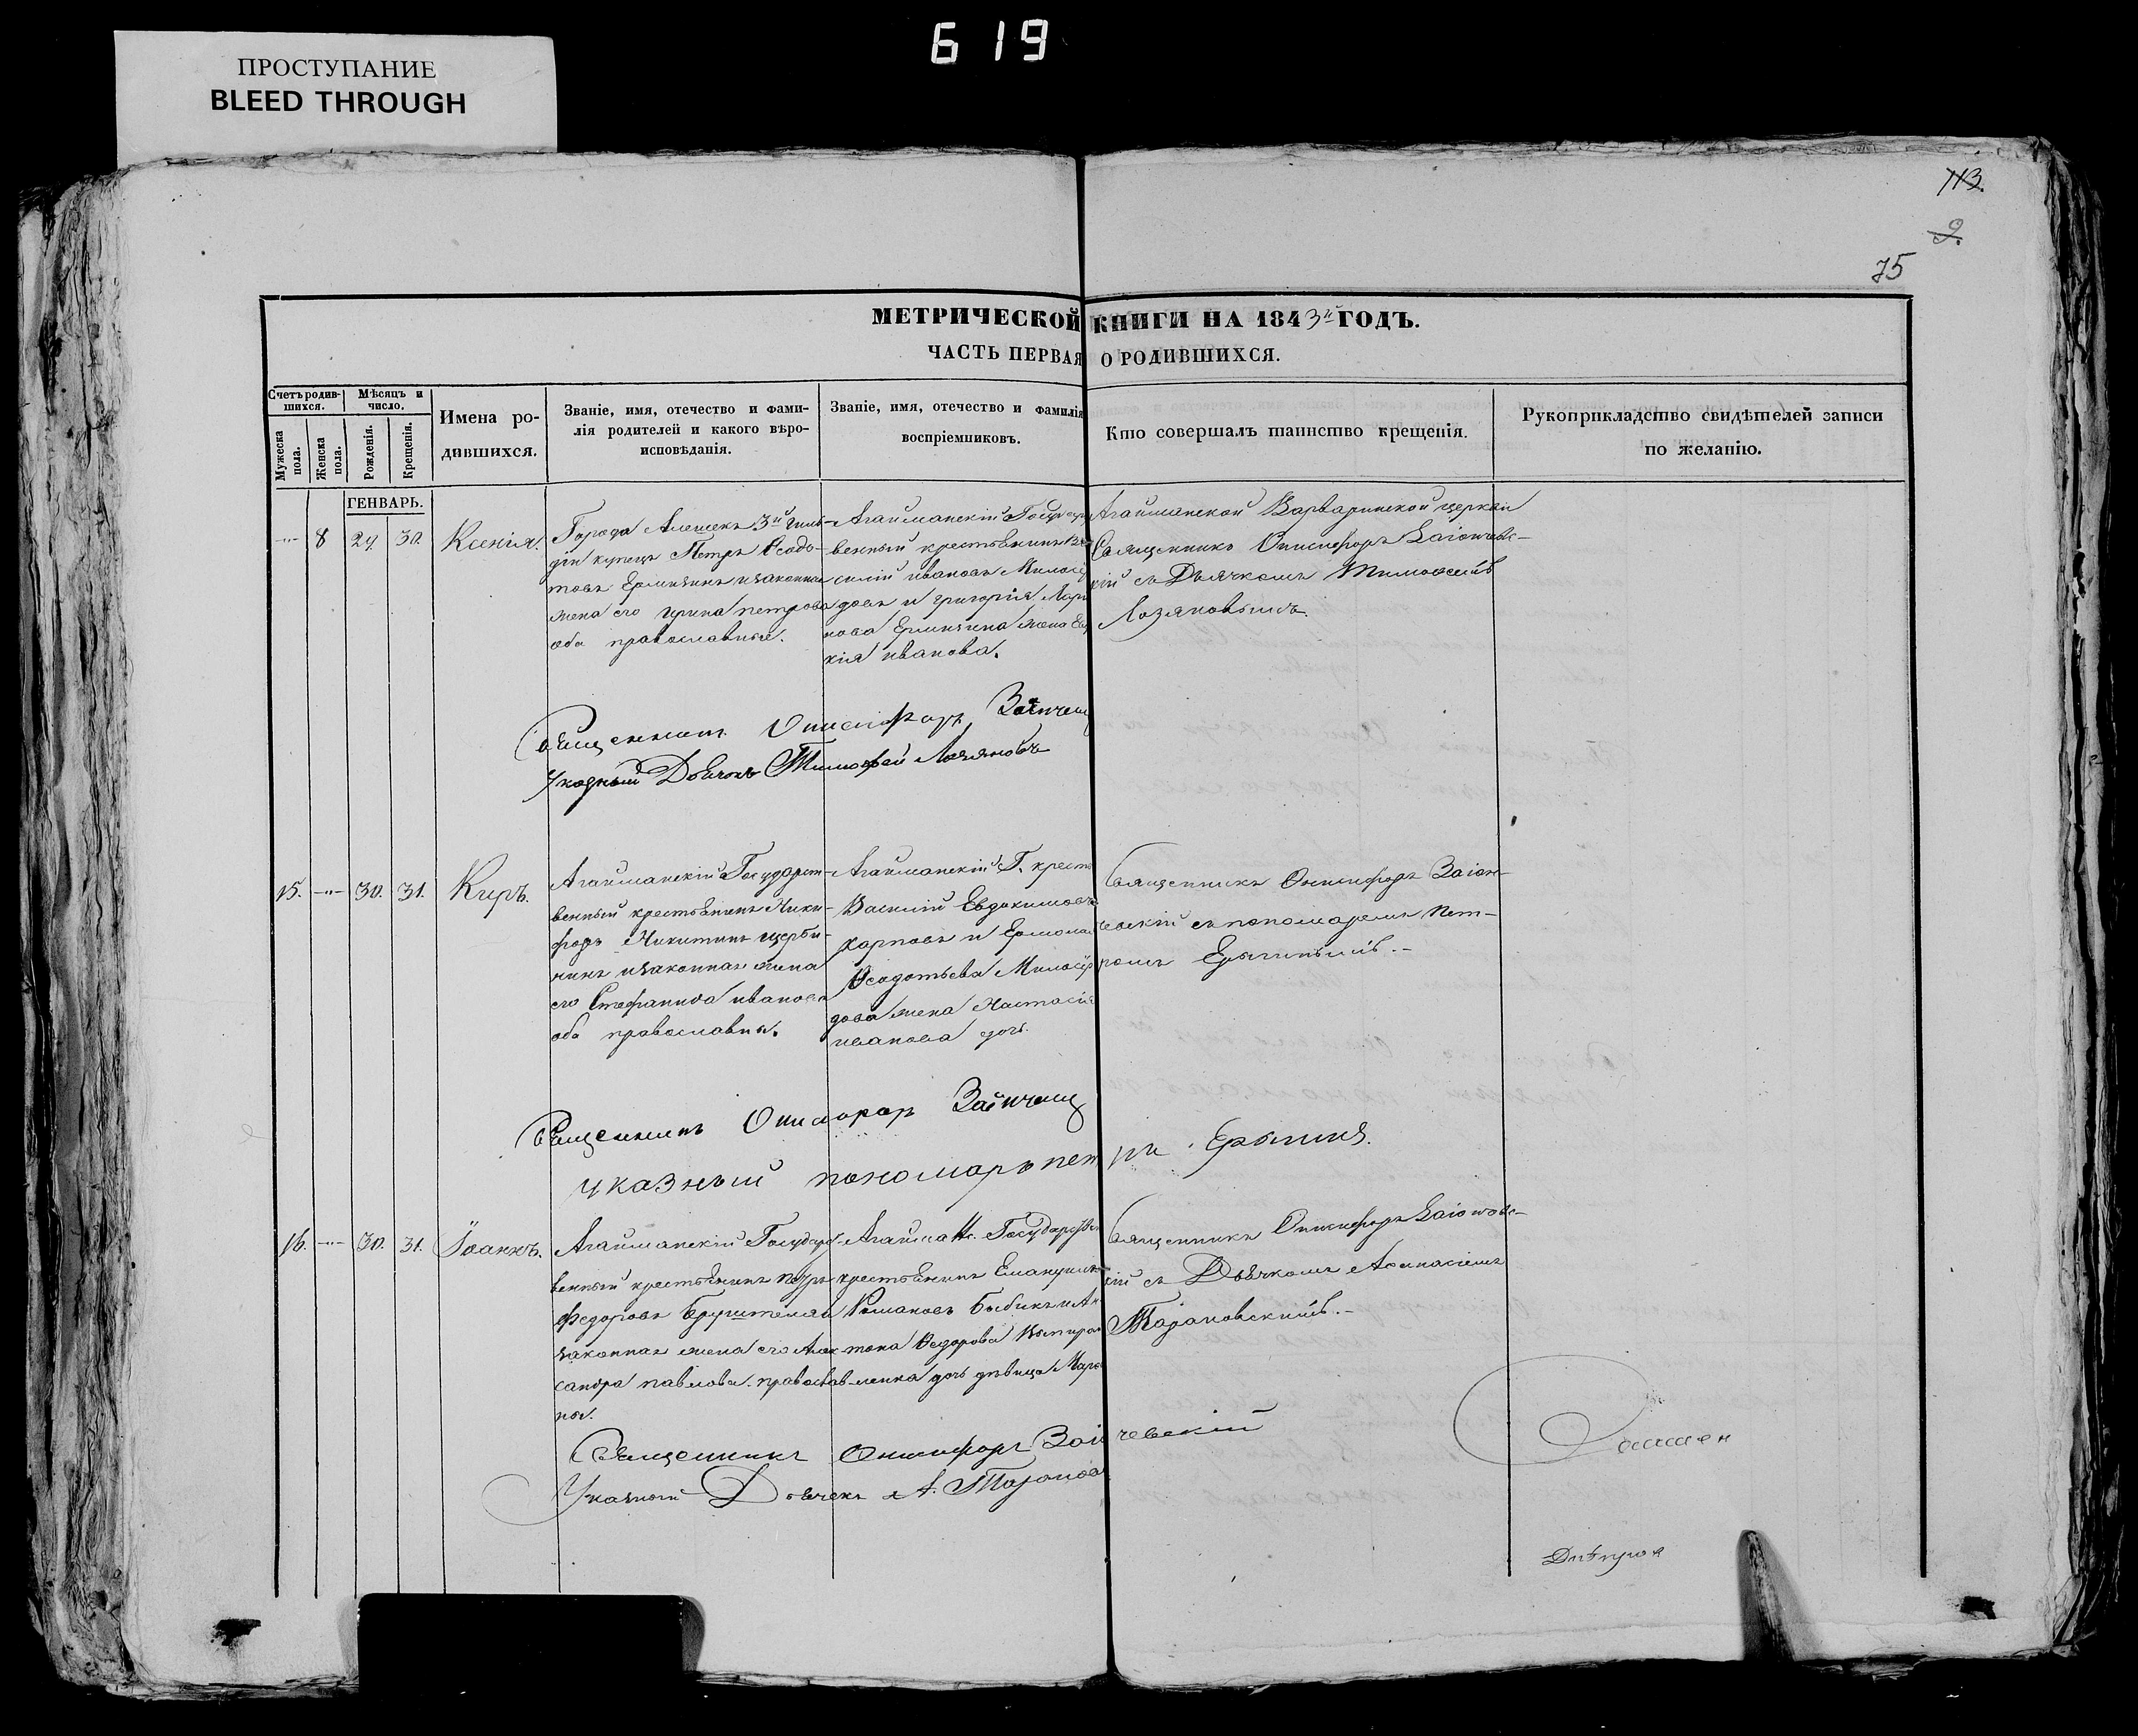 ПРОСТУПАНИЕ
BLEED THROUGH
619
113.
9.
75
МЕТРИЧЕСКОЙ КНИГИ НА 1843й ГОДЪ.
ЧАСТЬ ПЕРВАЯ О РОДИВШИХСЯ.
Счетъ родившихся.
Мужеска пола.
Женска пола.
Мѣсяцъ и число.
Рожденія.
Крещенія.
Имена родившихся.
Званіе, имя, отечество и фамилія родителей и какого вѣроисповѣданія.
Званіе, имя, отечество и фамилія воспріемниковъ.
Кто совершалъ таинство крещенія.
Рукоприкладство свидѣтелей записи по желанію.
ГЕНВАРЬ.
-"- 8 29 30. Ксенія.
Города Алешекъ 3й гиль-
діи купецъ Петръ Ѳедо-
товъ изаконная
жена его ирина петрова
оба православные.
Агайманскій Государ
венный крестьянинъ Ва
силій ивановъ Милосер
довъ и григорія
жена Ев
кія иванова.
Агайманской Варваринской церкви
Священникъ Онисифоръ Заіончевс-
кій съ Дьячкомъ Тимофеемъ
Лозяновымъ.
Священникъ Онисифоръ
Указный Дьячокъ Тимофей Лозяновъ
15. -"- 30. 31. Киръ.
Агайманскій Государст-
венный крестьянинъ Ники-
форъ Никитинъ щерби-
нинъ изаконная жена
его Стефанида иванова
оба православны.
Агайманскій Г. кресть
Василій Евдокимовъ
карповъ и
Ѳедотьева Милосер
дова жена Настасія
иванова дочь.
Священникъ Онисифоръ Заіон-
чевскій съ пономаремъ Пет-
ромъ
Священникъ Онисифор
указный пономарь петръ
16. -"- 30. 31. Іоаннъ.
Агайманскій Государс
венный крестьянинъ петръ
Федоровъ
законная жена его Алек
сандра павлова. православ-
ны.
Агайманс. Государствен
крестьянинъ Емануилъ
Романовъ Быбикъ и Ан
тона Ѳедорова
ленка дочь дѣвица Мари
Священникъ Онисифоръ Заіончевс-
кій съ Дьячкомъ Афанасіемъ
Тарановскимъ.-
Священникъ Онисифоръ Заіончевскій
Указный Дьячекъ А. Таранов